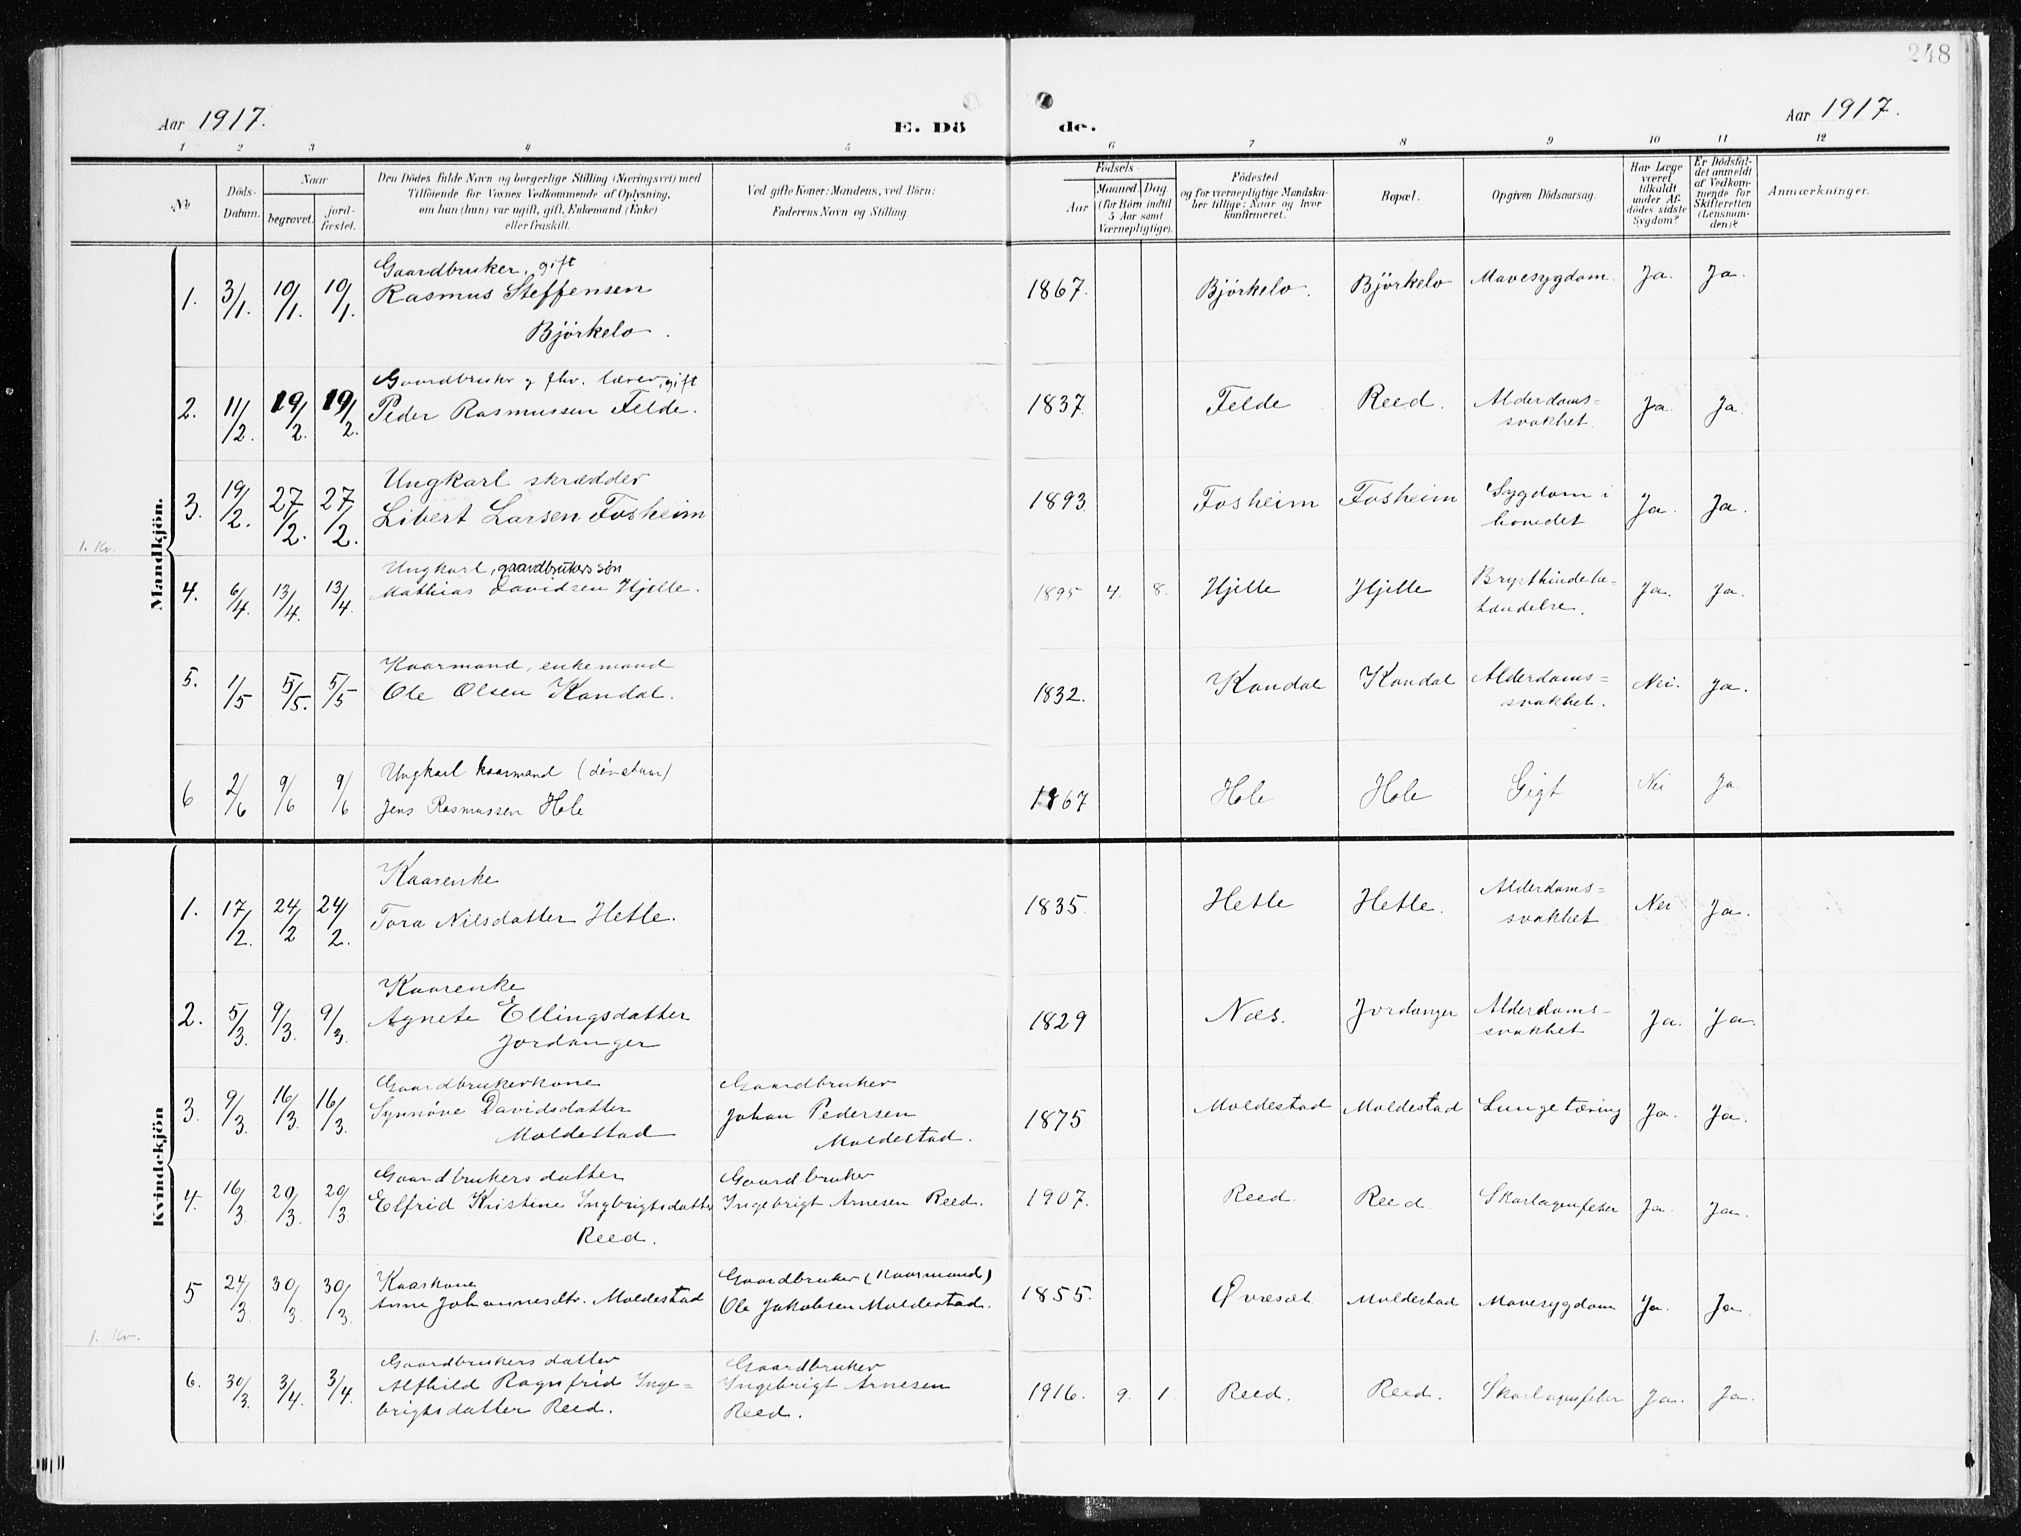 248
Aar 1917.
E. Dö
de.
Aar 1917.
1 2 3 4 5 6 7 8 9 10 11 12
No
Döds-
Datum.
Naar
begravet.
jord-
fæstet.
Den Dödes fulde Navn og borgerlige Stilling (Næringsvei) med
Tilföiende for Voxnes Vedkommende af Oplysning,
om han (hun) var ugift, gift, Enkemand (Enke)
eller fraskilt.
Ved gifte Koner: Mandens, ved Börn:
Faderens Navn og Stilling.
Födsels-
Aar
Maaned. Dag.
(for Börn indtil
5 Aar samt
Værnepligtige).
Födested
og for værnepligtige Mandska-
ber tillige: Naar og hvor
konfirmeret.
Bopæl.
Opgiven Dödsaarsag.
Har Læge
været
tilkaldt
under Af-
dödes sidste
Sygdom?
Er Dödsfal-
det anmeldt
af Vedkom-
mende for
Skifteretten
(Lensman-
den)?
Anmærkninger.
Mandkjön.
1. Kv.
1. 3/1. 10/1. 10/1. Gaardbruker, gift
Rasmus Steffensen
Bjørkelo.
1867. Bjørkelo. Bjørkelo Mavesygdom. Ja. Ja.
2. 11/2. 19/2. 19/2. Gaardbruker g fhv. lærer, gift
Peder Rasmussen Felde.
1837. Felde Reed. Alderdoms=
svakhet. Ja. Ja.
3. 19/2. 27/2. 27/2. Ungkarl skrædder
Libert Larsen Fosheim
1893. Fosheim Fosheim Sygdom i
hovedet Ja. Ja.
4. 6/4. 13/4. 13/4. Ungkarl, gaardbrukers søn
Mathias Davidsen Hjelle.
1895 4. 8. Hjelle Hjelle Brysthindebe-
tændelse. Ja. Ja.
5. 1/5 5/5. 5/5 Kaarmand, enkemand
Ole Olsen Kandal.
1832. Kandal Kandal Alderdoms=
svakhet. Nei. Ja.
6 2/6 9/6 9/6 Ungkarl kaarmand (døvstum)
Jens Rasmussen Hole
1867 Hole Hole Gigt Nei Ja
Kvindekjön
1. 17/2. 24/2 24/2. Kaarenke
Tora Nilsdatter Hetle.
1835. Hetle Hetle. Alderdoms=
svakhet Nei Ja.
2. 5/3. 9/3. 9/3. Kaarenke
Agnete Ellingsdatter
Jordanger
1829 Næs. Jordanger Alderdoms-
svakhet Ja. Ja.
3. 9/3. 16/3. 16/3. Gaardbrukerkone
Synnøve Davidsdatter
Moldestad
Gaardbruker
Johan Pedersen
Moldestad.
1875 Moldestad Moldestad Lungetæring Ja. Ja.
4. 16/3 20/3. 20/3 Gaardbrukers datter
Elfrid Kristine Ingbrigtsdatter
Reed.
Gaardbruker
Ingebrigt Arnesen Reed.
1907. Reed. Reed. Skarlagensfeber Ja. Ja.
5 24/3 30/3. 30/3. Kaarkone
Anne Johannesdtr. Moldestad
Gaardbruker (Kaarmand)
Ole Jakobsen Moldestad.
1855. Øvresæt. Moldestad Mavesygdom Ja. Ja.
1. Kv.
6. 30/3. 3/4. 3/4. Gaardbrukers datter
Alfhild Ragnfrid Inge=
brigtsdatter Reed.
Gaardbruker
Ingebrigt Arnesen
Reed.
1916. 9. 1. Reed. Reed. Skarlagensfeber Ja. Ja.